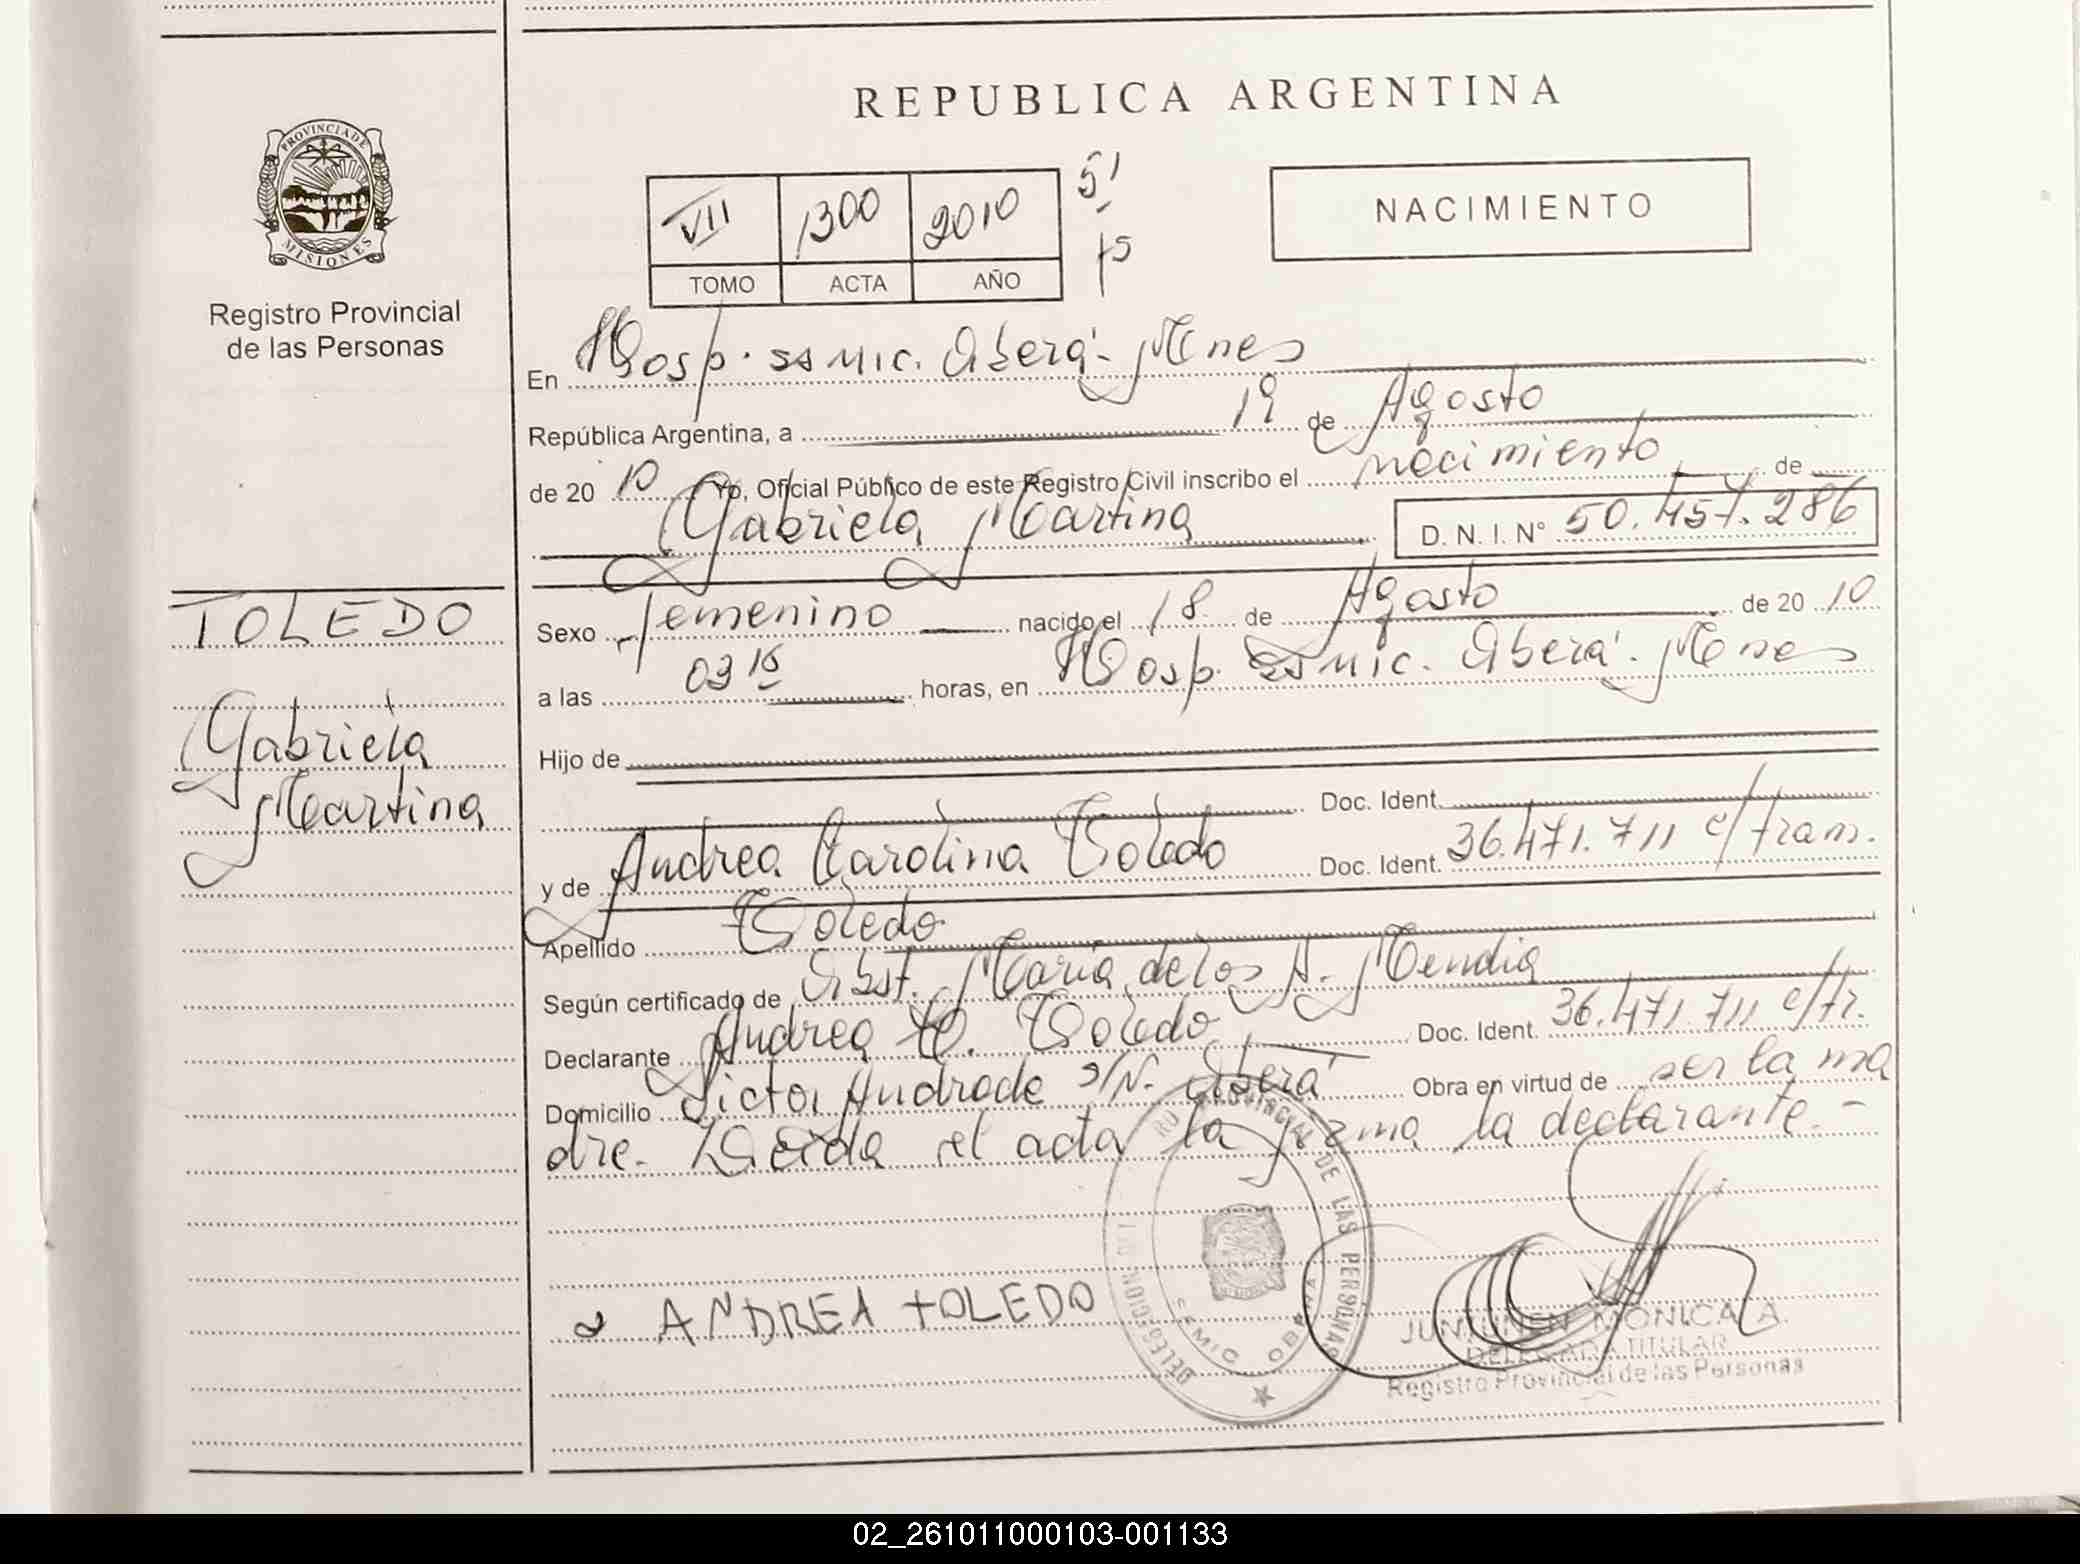 REPUBLICA ARGENTINA
PROVINCIA DE
MISIONES
Registro Provincial
de las Personas
VII 1300 2010
TOMO ACTA AÑO
51
15
NACIMIENTO
En Hosp. SAMIC. Oberá - Mnes
República Argentina, a 19 de Agosto
de 20 10 Yo, Oficial Público de este Registro Civil inscribo el nacimiento de
Gabriela Martina D. N. I. N° 50.457.286
TOLEDO
Gabriela
Martina
Sexo femenino nacido el 18 de Agosto de 20 10
a las 03 15 horas, en Hosp. SAMIC. Oberá. Mnes
Hijo de
Doc. Ident.
y de Andrea Carolina Toledo Doc. Ident. 36.471.711 c/tram.
Apellido Toledo
Según certificado de Obst. Maria de los A. Mendia
Declarante Andrea C. Toledo Doc. Ident. 36.471.711 c/tr.
Domicilio Victor Andrade s/N. Oberá Obra en virtud de ser la ma
dre. Leida el acta la firma la declarante. -
ANDREA TOLEDO
PROVINCIAL DE LAS PERSONAS
DELEGACION
SAMIC OBERA
JUNTUNEN MONICA A.
DELEGADA TITULAR
Registro Provincial de las Personas
02_261011000103-001133